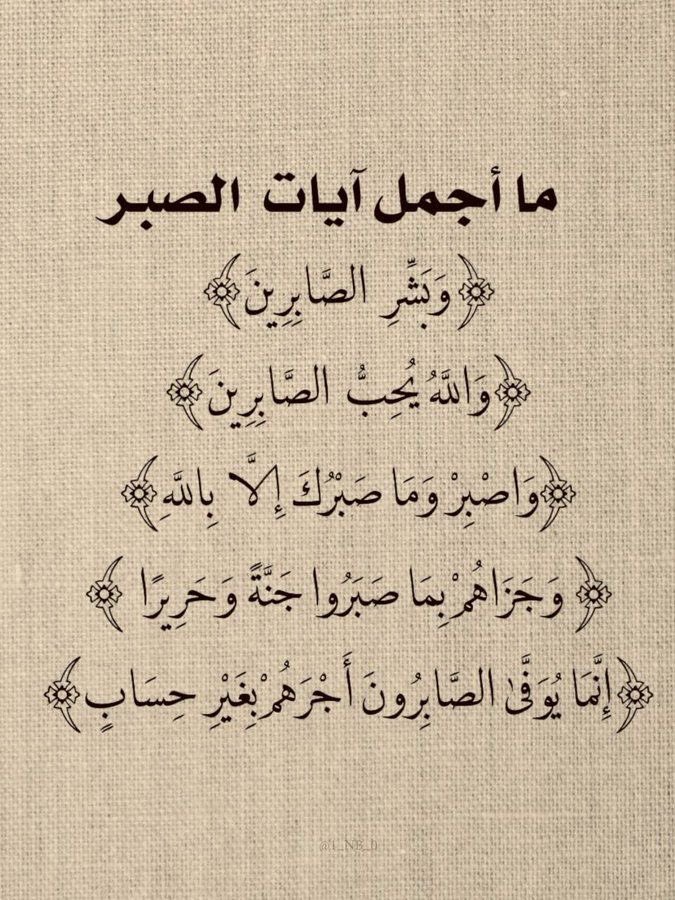 ما أجمل آيات الصبر
﴿وَبَشِّرِ الصَّابِرِينَ﴾
﴿وَاللَّهُ يُحِبُّ الصَّابِرِينَ﴾
﴿وَاصْبِرْ وَمَا صَبْرُكَ إِلَّا بِاللَّهِ﴾
﴿وَجَزَاهُمْ بِمَا صَبَرُوا جَنَّةً وَحَرِيرًا﴾
﴿إِنَّمَا يُوَفَّىٰ الصَّابِرُونَ أَجْرَهُمْ بِغَيْرِ حِسَابٍ﴾